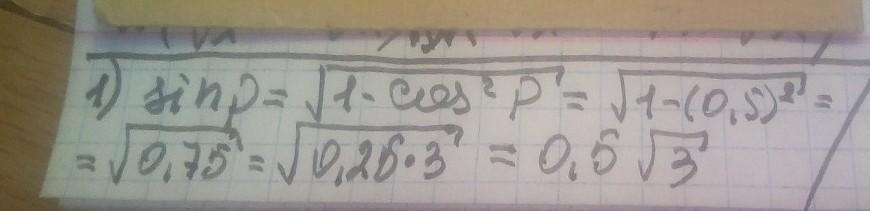 1) sin p = √(1 - cos² p) = √(1-(0,5)²) =
= √0,75 = √(0,25·3) = 0,5 √3